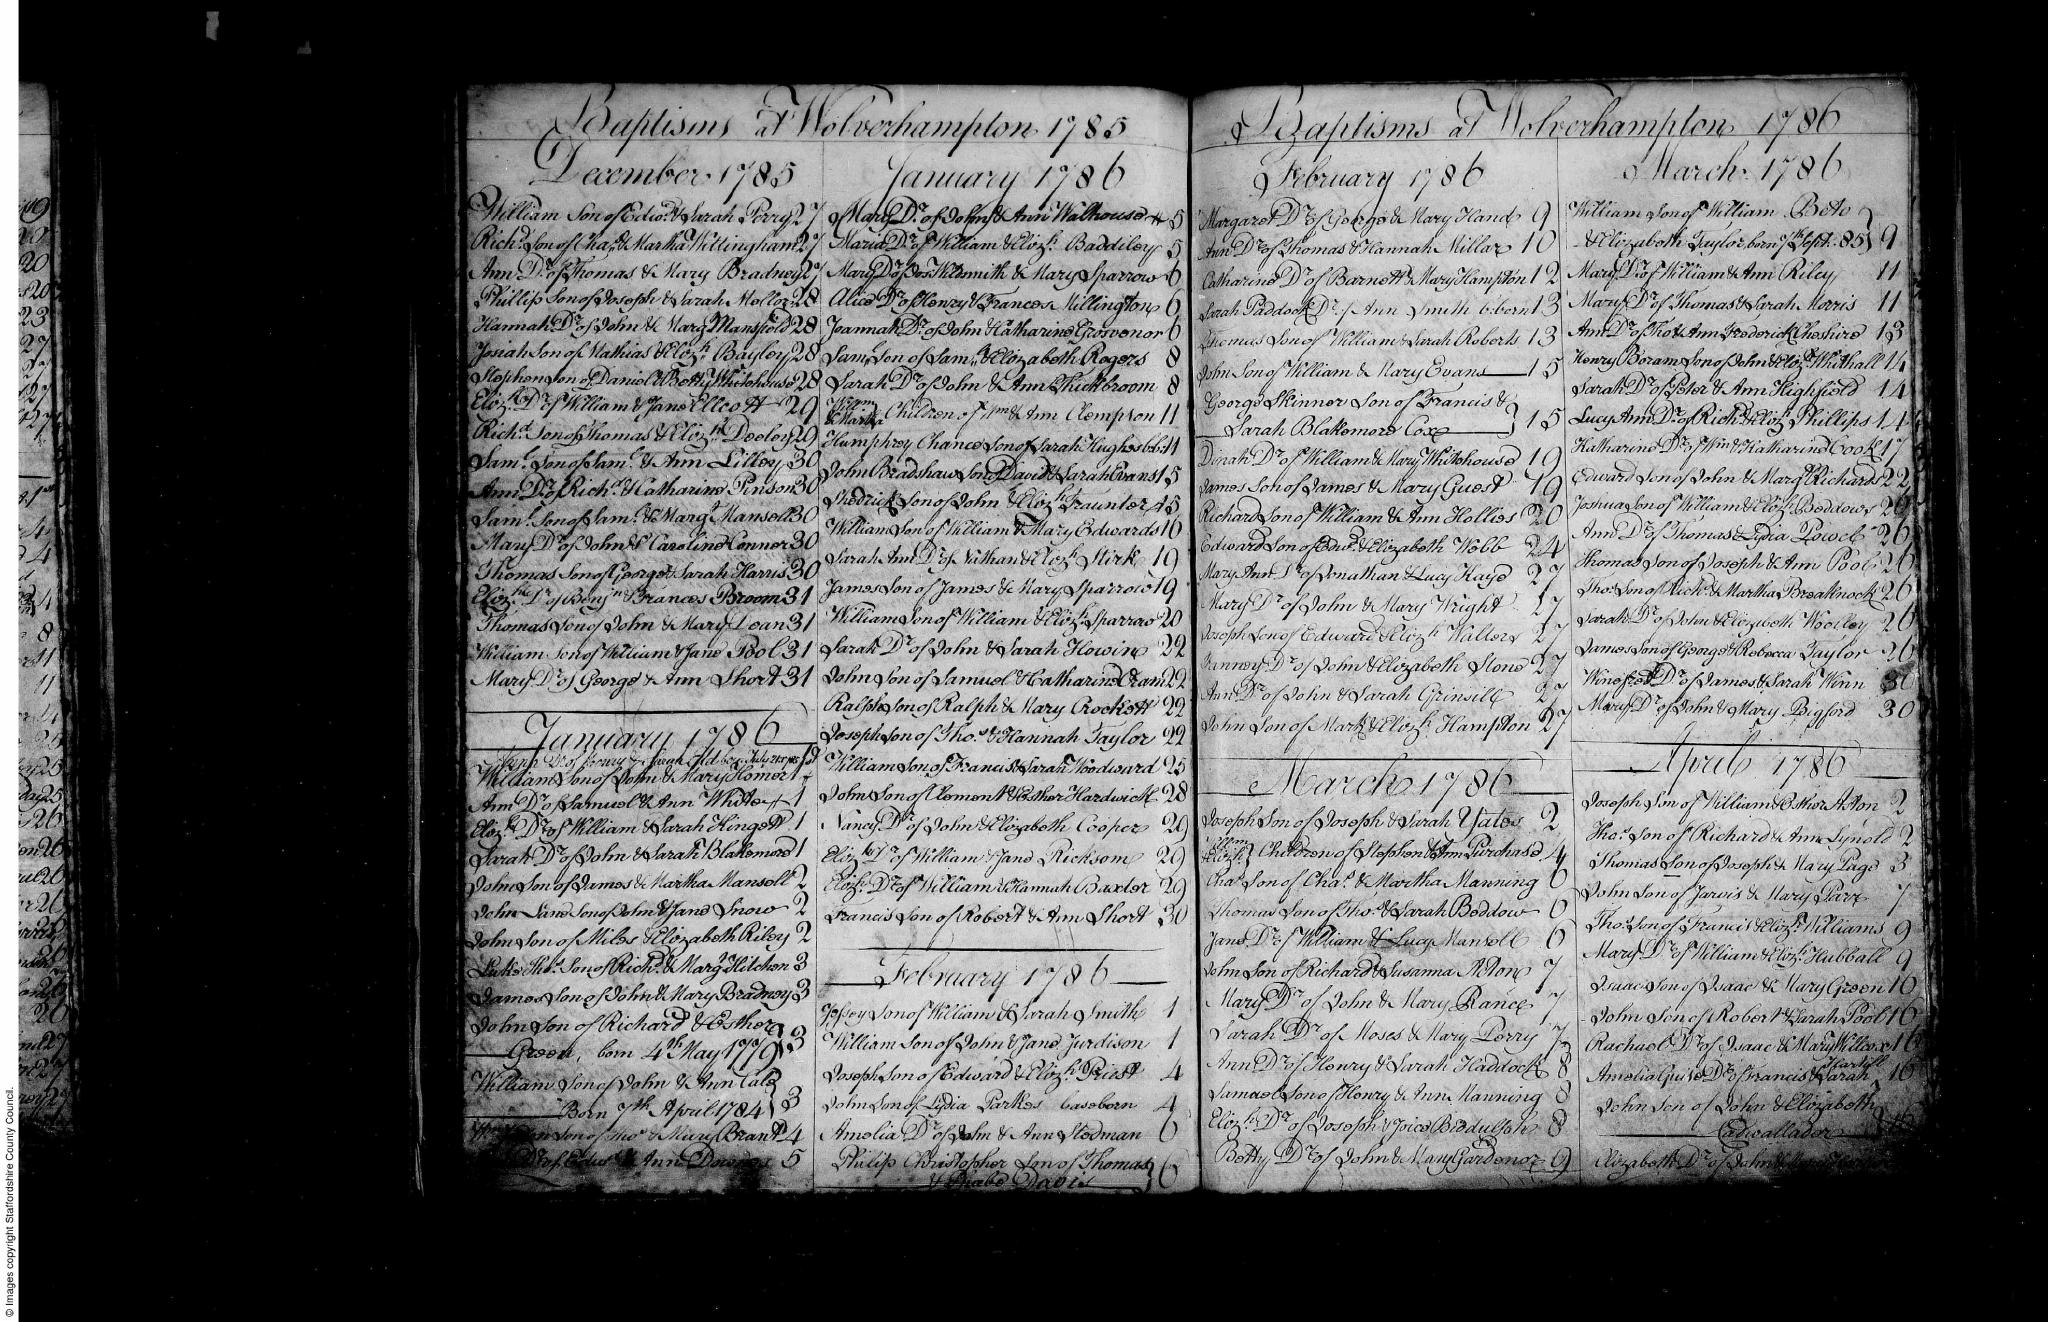 Baptisms at Wolverhampton 1785
December 1785
William Son of Edwd. & Sarah Perry 27
Richd. Son of Chas. & Martha Wittingham 27
Ann Dr. of Thomas & Mary Bradney 27
Phillip Son of Joseph & Sarah Mollor 28
Hannah Dr. of John & Margt. Mansfield 28
Josiah Son of Mathias & Elizh. Bayley 28
Stephen Son of Daniel & Betty Whitehouse 28
Elizh. Dr. of William & Jane Ellcott 29
Richd. Son of Thomas & Elizh. Deeley 29
Saml. Son of Saml. & Ann Lilley 30
Ann Dr. of Richd. & Catharine Pinson 30
Saml. Son of Saml. & Margt. Mansell 30
Mary Dr. of John & Caroline Conner 30
Thomas Son of George & Sarah Harris 30
Elizth. Dr. of Benjn. & Frances Broom 31
Thomas Son of John & Mary Loan 31
William Son of William & Jane Pool 31
Mary Dr. of George & Ann Short 31
January 1786
William Son of John & Mary Homer 1
Ann Dr. of Samuel & Ann White 1
Elizh. Dr. of William & Sarah Kingett 1
Sarah Dr. of John & Sarah Blakemore 1
John Son of James & Martha Mansell 2
John Land Son of John & Jane Snow 2
John Son of Miles & Elizabeth Riley 2
Luke Thos. Son of Richd. & Margt. Hitchen 3
James Son of John & Mary Bradney 3
John Son of Richard & Esther
Green, born 4th May 1779 } 3
William Son of John & Ann
Born 7th April 1784 } 3
Son of Thos. & Mary Brant 4
Dr. of Edwd. & Ann 5
January 1786
Mary Dr. of John & Ann Walhouse 5
Maria Dr. of William & Elizh. Baddiley 5
Mary Dr. of Jos. Wilsmith & Mary Sparrow 6
Alice Dr. of Henry & Frances Millington 6
Joannah Dr. of John & Catharine Grosvenor 6
Saml. Son of Saml. & Elizabeth Rogers 8
Sarah Dr. of John & Ann Thickbroom 8
Willm.
& Martha Children of Wm. & Ann Clempton 11
Humphrey Chance Son of Sarah Hughes bb 11
John Bradshaw Son of David & Sarah Evans 15
Shedrick Son of John & Elizh. Fraunter 15
William Son of William & Mary Edwards 16
Sarah Ann Dr. of Nathan & Elizh. Stirk 19
James Son of James & Mary Sparrow 19
William Son of William & Elizh. Sparrow 20
Sarah Dr. of John & Sarah Howin 22
John Son of Samuel & Catharine Cram 22
Ralph Son of Ralph & Mary Crockett 22
Joseph Son of Thos. & Hannah Taylor 22
William Son of Francis & Sarah Woodward 25
John Son of Clement & Esther Hardwick 28
Nancy Dr. of John & Elizabeth Cooper 29
Elizth. Dr. of William & Jane Ricksom 29
Elizh. Dr. of William & Hannah Baxter 29
Francis Son of Robert & Ann Short 30
February 1786
Son of William & Sarah Smith 1
William Son of John & Jane Jurdison 1
Joseph Son of Edward & Elizh. Priest 4
John Son of Lydia Parkes baseborn 4
Amelia Dr. of John & Ann Stedman 6
Philip Christopher Son of Thomas
& Phœbe Davis } 6
Baptisms at Wolverhampton 1786
February 1786
Margaret Dr. of George & Mary Hand 9
Ann Dr. of Thomas & Hannah Millar 10
Catharine Dr. of Barnett & Mary Hampton 12
Sarah Paddock Dr. of Ann Smith b:born 13
Thomas Son of William & Sarah Roberts 13
John Son of William & Mary Evans 15
George Skinner Son of Francis &
Sarah Blakemore Cox } 15
Dinah Dr. of William & Mary Whitehouse 19
James Son of James & Mary Guest 19
Richard Son of William & Ann Hollies 20
Edward Son of Edwd. & Elizabeth Webb 24
Mary Ann Dr. of Jonathan & Lucy Kaye 27
Mary Dr. of John & Mary Wright 27
Joseph Son of Edward & Elizh. Walters 27
Fanney Dr. of John & Elizabeth Stone 27
Ann Dr. of John & Sarah Grinsill 27
John Son of Mark & Elizh. Hampton 27
March 1786
Joseph Son of Joseph & Sarah Yates 2
William
& Elizh. } Children of Stephen & Ann Purchase 4
Chas. Son of Chas. & Martha Manning 6
Thomas Son of Thos. & Sarah Beddow 6
Jane Dr. of William & Lucy Mansell 6
John Son of Richard & Susanna Aston 7
Mary Dr. of John & Mary Rance 7
Sarah Dr. of Moses & Mary Perry 7
Ann Dr. of Henry & Sarah Haddock 8
Samuel Son of Henry & Ann Manning 8
Elizh. Dr. of Joseph & Joice Biddulph 8
Betty Dr. of John & Mary Gardener 9
March 1786
William Son of William Bete
& Elizabeth Taylor born 7th Sept. 85 } 9
Mary Dr. of William & Ann Riley 11
Mary Dr. of Thomas & Sarah Morris 11
Ann Dr. of Tho. & Ann Frederick Cheshire 13
Henry Boram Son of John & Elizh. Whithall 14
Sarah Dr. of Peter & Ann Highfield 14
Lucy Ann Dr. of Richd. & Elizh. Phillips 14
Katharine Dr. of Wm. & Katharine Cook 17
Edward Son of John & Margt. Richards 22
Joshua Son of William & Elizh. Beddows 26
Ann Dr. of Thomas & Lydia Powel 26
Thomas Son of Joseph & Ann Pool 26
Thos. Son of Richd. & Martha Breaknock 26
Sarah Dr. of John & Elizabeth Woolley 26
James Son of George & Rebecca Taylor 26
Winefret Dr. of James & Sarah Winn 30
Mary Dr. of John & Mary Pigford 30
April 1786
Joseph Son of William & Esther Aston 2
Thos. Son of Richard & Ann Lynold 2
Thomas Son of Joseph & Mary Page 3
John Son of Jarvis & Mary Parr 7
Thos. Son of Francis & Elizh. Williams 9
Mary Dr. of William & Elizh. Hubball 9
Isaac Son of Isaac & Mary Green 10
John Son of Robert & Sarah Pool 16
Rachael Dr. of Isaac & Mary Willcox 16
Amelia Dr. of Francis & Sarah 16
John Son of John & Elizabeth
Cadwallader } 16
Elizabeth Dr. of John &
© Images copyright Staffordshire County Council.